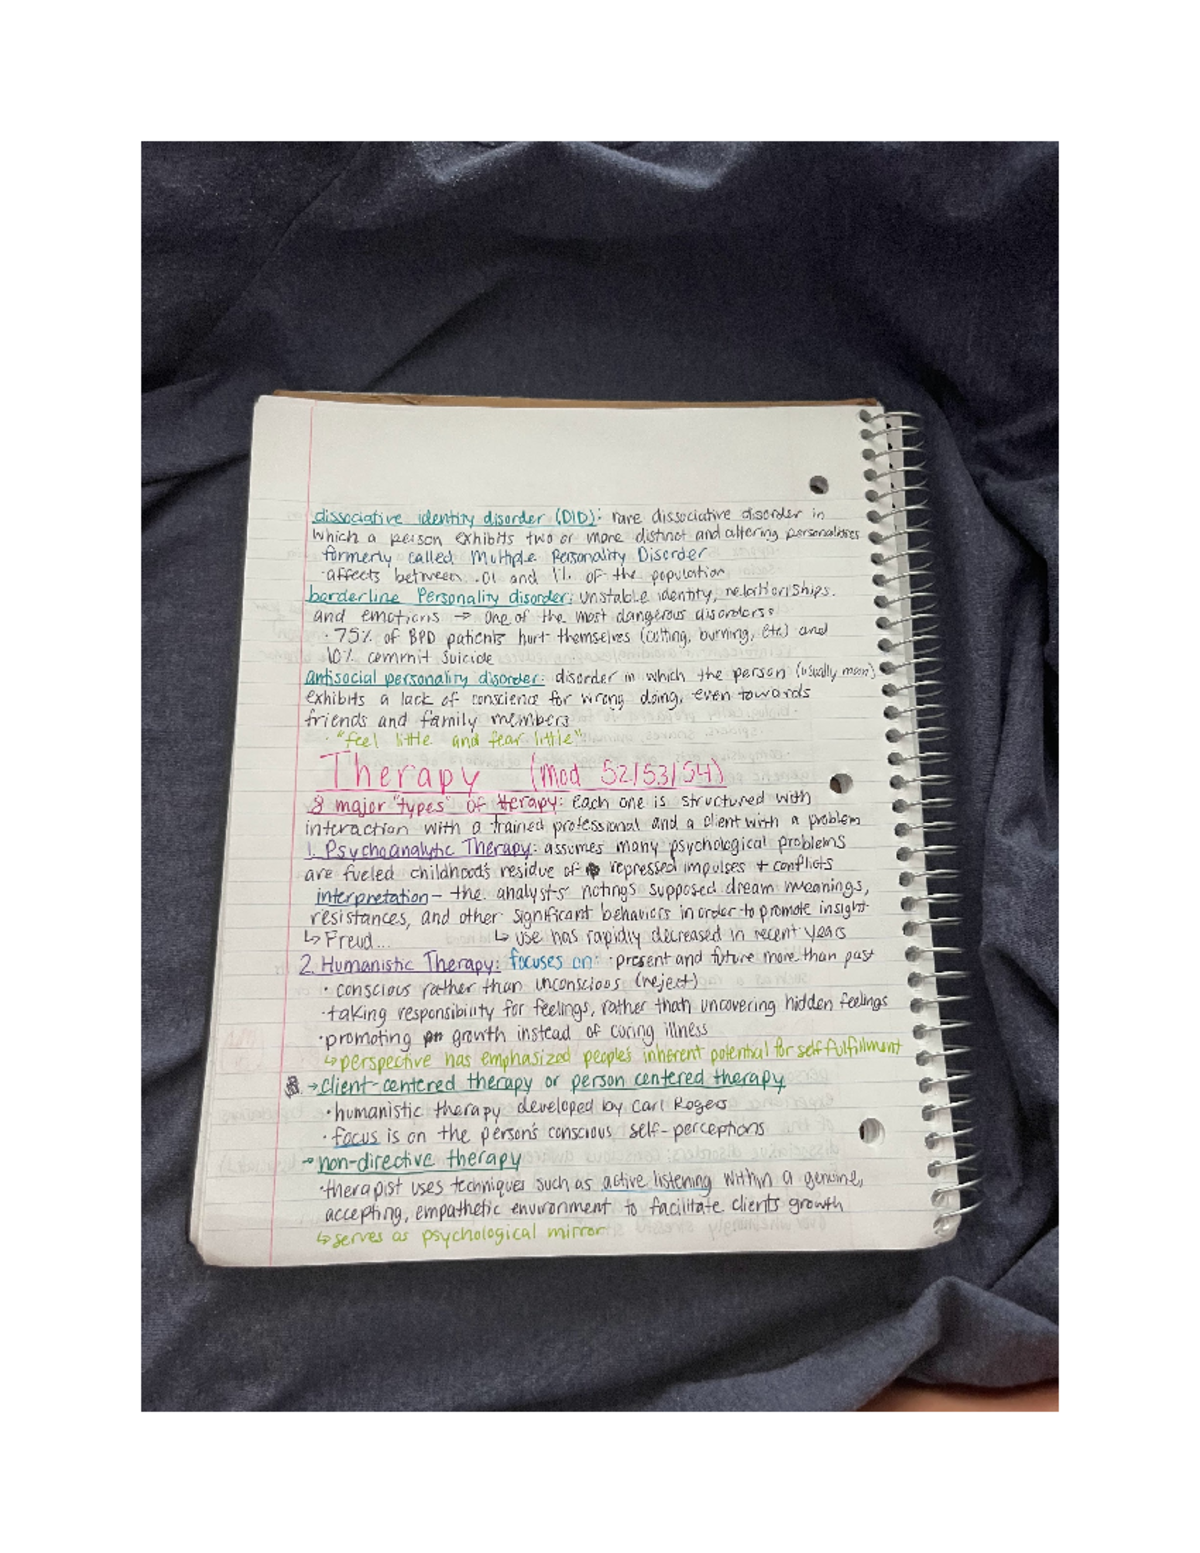 dissociative identity disorder (DID): rare dissociative disorder in
which a person exhibits two or more distinct and altering personalities
formerly called Multiple Personality Disorder
·affects between .01 and 1% of the population
borderline Personality disorder: unstable identity, relationships.
and emotions → one of the most dangerous disorders:
· 75% of BPD patients hurt themselves (cutting, burning, etc) and
10% commit suicide
antisocial personality disorder: disorder in which the person (usually man)
exhibits a lack of conscience for wrong doing, even towards
friends and family members
· "feel little and fear little"
Therapy (Mod 52/53/54)
8 major "types" of therapy: each one is structured with
interaction with a trained professional and a client with a problem
1. Psychoanalytic Therapy: assumes many psychological problems
are fueled childhood's residue of repressed impulses + conflicts
interpretation- the analysts' notings supposed dream meanings,
resistances, and other significant behaviors in order to promote insight
↳ Freud... ↳ use has rapidly decreased in recent years
2. Humanistic Therapy: focuses on: ·present and future more than past
· conscious rather than unconscious (reject)
·taking responsibility for feelings, rather than uncovering hidden feelings
·promoting growth instead of curing illness
↳ perspective has emphasized people's inherent potential for self fulfillment
→ client-centered therapy or person centered therapy
· humanistic therapy developed by Carl Rogers
· focus is on the person's conscious self-perceptions
→ non-directive therapy
·therapist uses techniques such as active listening within a genuine,
accepting, empathetic environment to facilitate clients growth
↳ serves as psychological mirror